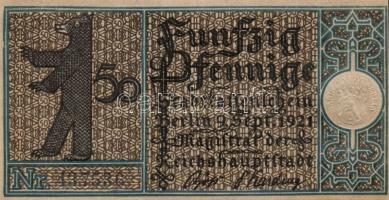 Funfzig
50 Pfennige
Stadtkassenschein
Berlin 9. Sept. 1921
Magistrat der
Reichshauptstadt
Nr.